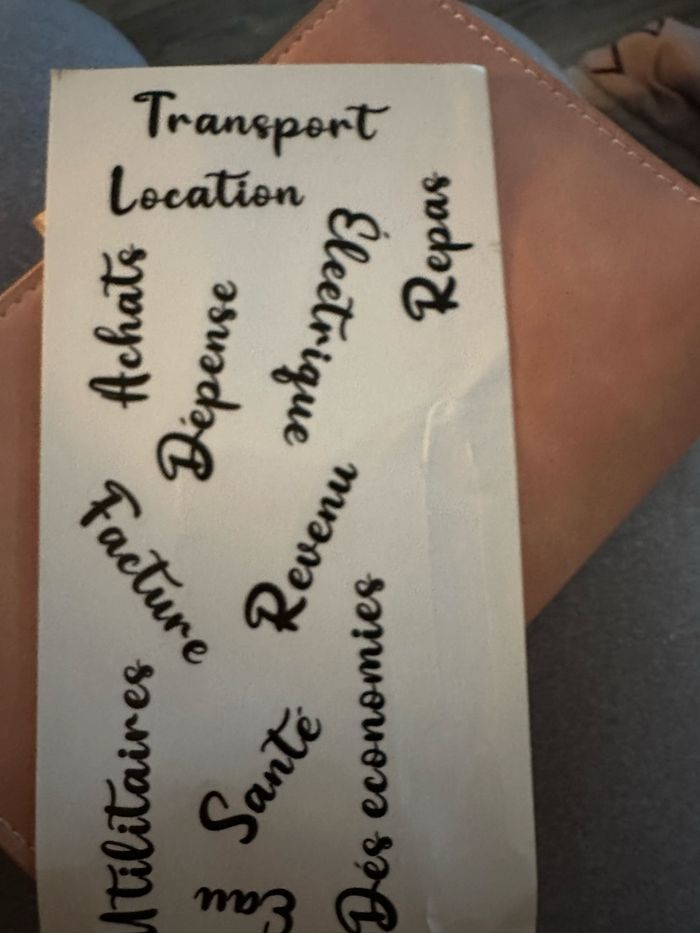 Transport
Location
Repas
Électrique
Achats
Dépense
Facture
Revenu
Utilitaires
Santé
Dés economies